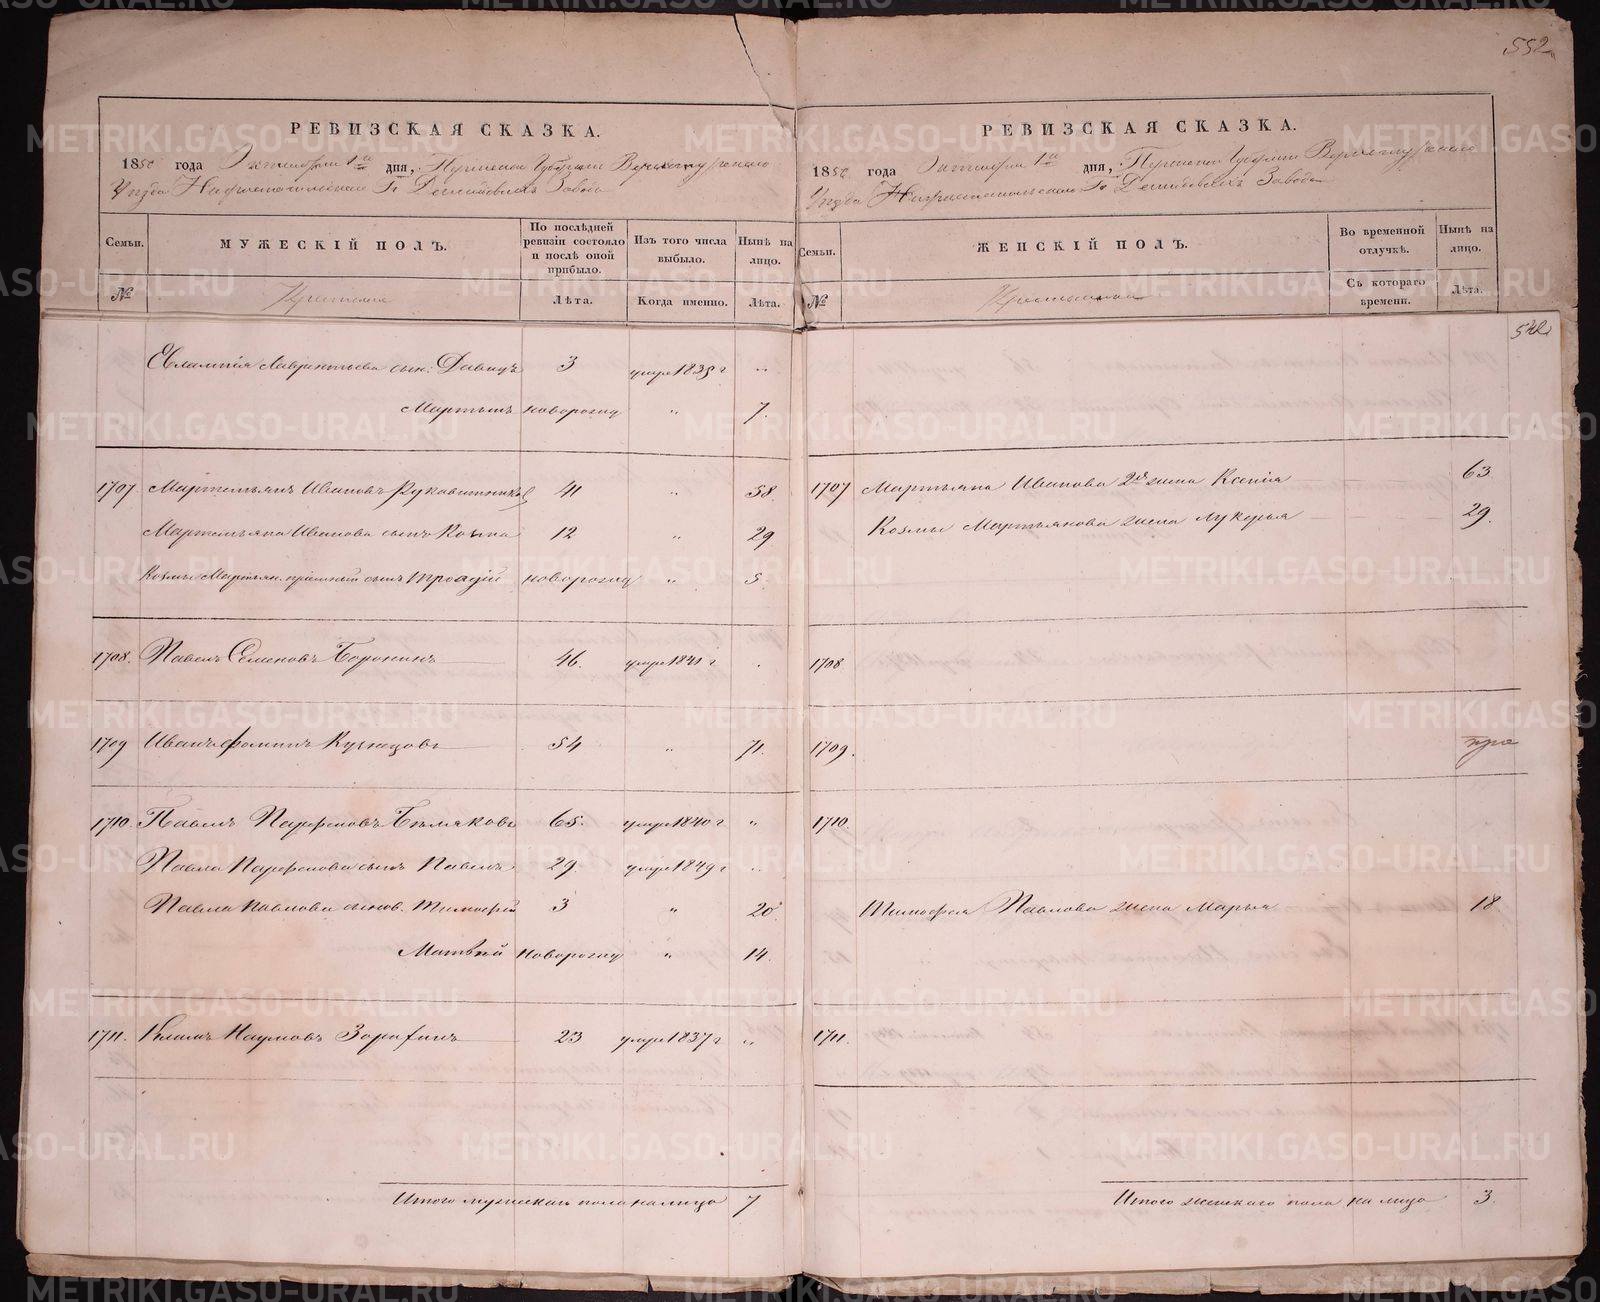 552
РЕВИЗСКАЯ СКАЗКА.
1850 года Октября 1го дня, Пермской Губернiи Верхотурскаго
Уѣзда Нижнетагильскаго Гг. Демидовыхъ Завода
Семьи. МУЖЕСКІЙ ПОЛЪ. По послѣдней ревизіи состояло и послѣ оной прибыло. Изъ того числа выбыло. Нынѣ на лицо.
№ Крестьяне Лѣта. Когда именно. Лѣта.
Евлампiя Лаврентьева сын: Давидъ 3 умре 1835 г "
Мартынъ новорожд " 7.
1707 Мартемьянъ Ивановъ Рукавишниковъ 41 " 58.
Мартемьяна Иванова сынъ Козма 12 " 29
Козмы Мартьян. сынъ Троадiй новорожд " 5.
1708. Павелъ Семеновъ Боронинъ 46. умре 1841 г .
1709 Иванъ Фоминъ Кузнецовъ 54 " 71.
1710. Павелъ Парфеновъ Бѣляковъ 65. умре 1840 г "
Павла Парфенова сынъ Павелъ 29. умре 1849 г "
Павла Павлова сынов. Тимофей 3 " 20
Матвѣй новорожд " 14.
1711. Климъ Наумовъ 23 умре 1837 г "
Итого мужескаго пола на лицо 7
РЕВИЗСКАЯ СКАЗКА.
1850 года Октября 1го дня, Пермской Губернiи Верхотурскаго
Уѣзда Нижнетагильскаго Гг. Демидовыхъ Завода
Семьи. ЖЕНСКІЙ ПОЛЪ. Во временной отлучкѣ. Нынѣ на лицо.
№ Крестьянки Съ котораго времени. Лѣта.
542
1707 Мартьяна Иванова 2я жена Ксенiя 63
Козмы Мартьянова жена Лукерья 29.
1708
1709.
1710.
Тимофея Павлова жена Марья 18.
1711.
Итого женскаго пола на лицо 3.
METRIKI.GASO-URAL.RU